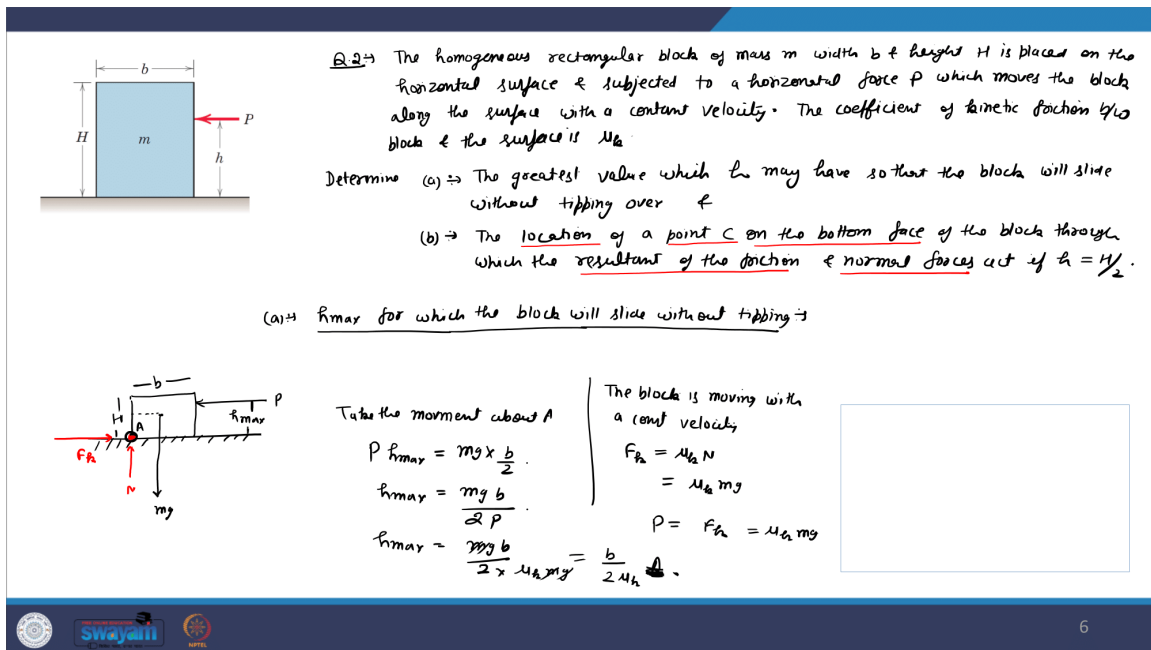 b
H
m
P
h
Q.2:→ The homogeneous rectangular block of mass m width b & height H is placed on the
horizontal surface & subjected to a horizonatal force P which moves the block
along the surface with a contant velocity. The coefficient of kinetic friction b/w
block & the surface is μk
Determine (a) :→ The greatest value which h may have so that the block will slide
without tipping over &
(b) → The location of a point C on the bottom face of the block through
which the resultant of the friction & normal forces act if h = H/2.
(a):→ hmax for which the block will slide without tipping :→
b
H
A
P
hmax
Fk
N
mg
Take the movment about A
P hmax = mg x b/2 .
hmax = mg b / 2 P .
hmax = mg b / 2 x μk mg = b / 2 μk .
The block is moving with
a const velocity
Fk = μk N
= μk mg
P = Fk = μk mg
swayam
NPTEL
6